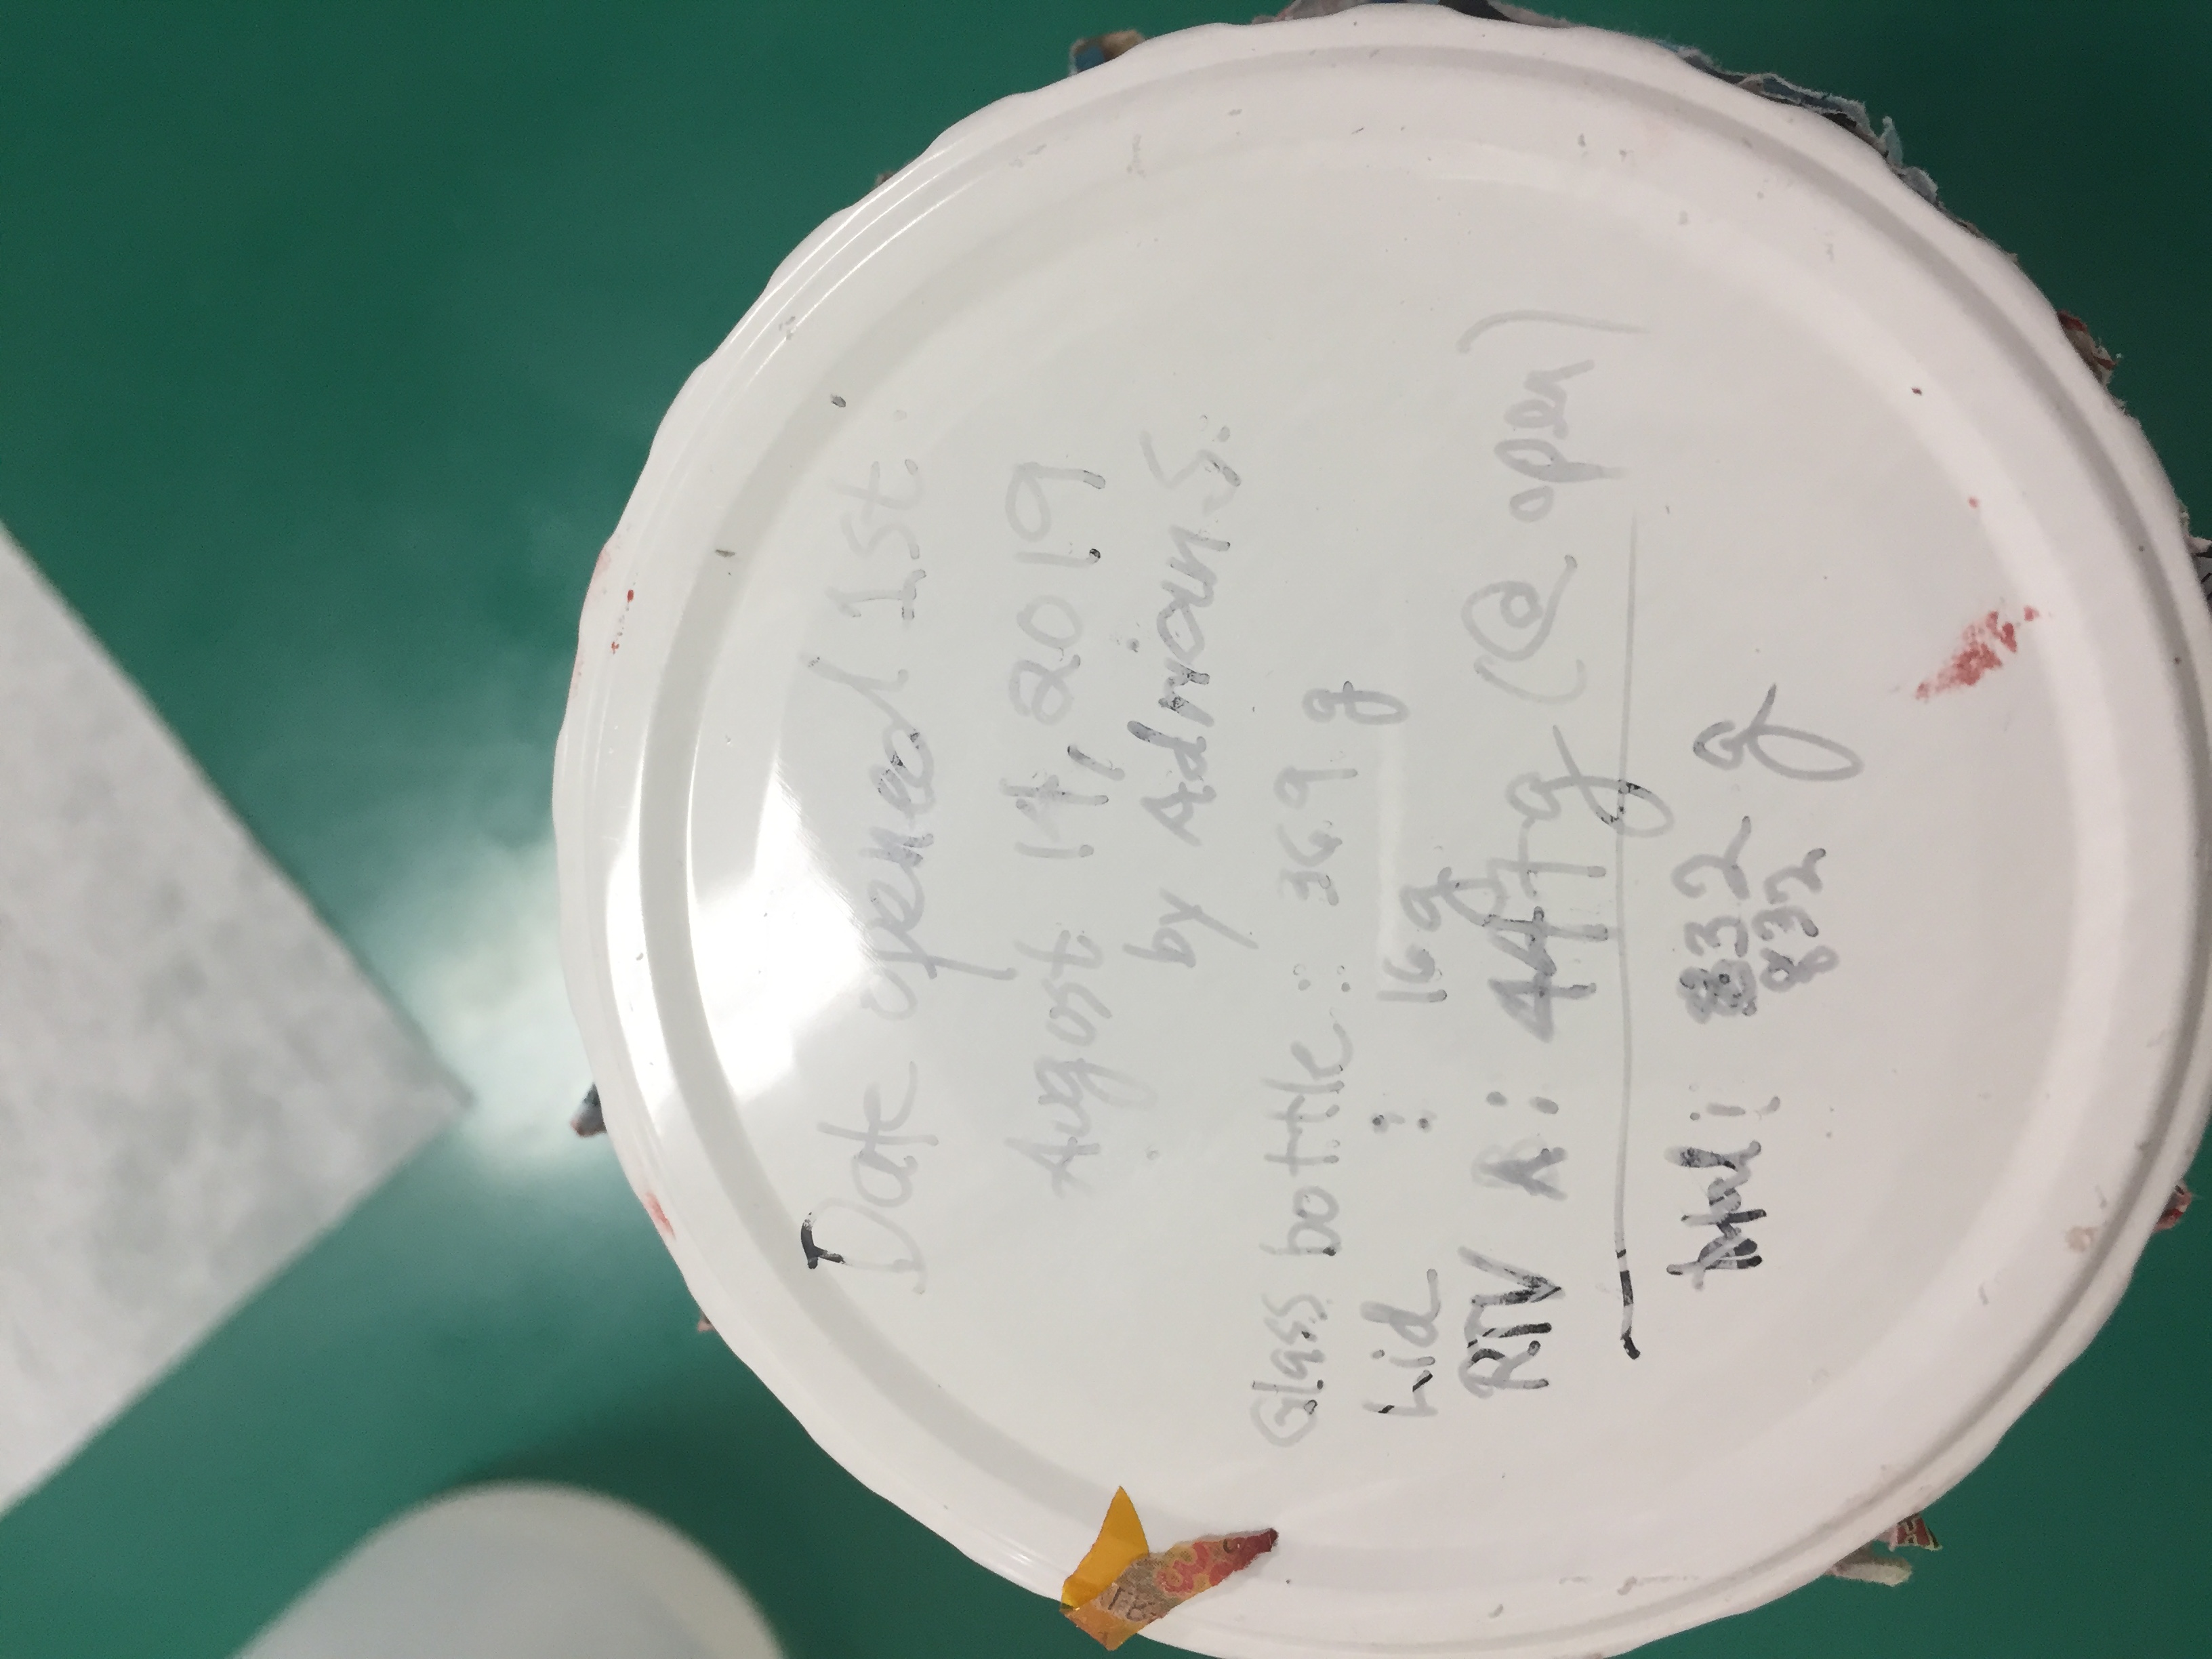 Date opened 1st:
August 14, 2019
by Adrian S.
Glass bottle: 369 g
Lid : 16g
RTV A: 447g (@ open)
total: 832 g
832